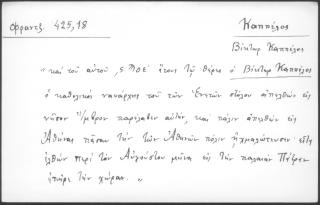 Φραντζ. 425,18
Καππέλος
Βίκτωρ Καππέλος
"καὶ τοῦ αὐτοῦ, ἔτους τῷ θέρει ὁ Βίκτωρ Καππέλος
ὁ καθολικὸς ναυάρχης τοῦ τῶν Ἐνετῶν στόλου ἀπελθὼν εἰς
νῆσον Ἴμβρον παρέλαβεν αὐτὴν, καὶ πάλιν ἀπελθὼν εἰς
Ἀθήνας πᾶσαν τὴν τῶν Ἀθηνῶν πόλιν ᾐχμαλώτευσεν
ἐλθὼν περὶ τὸν Αὔγουστον μῆνα εἰς τὴν παλαιὰν Πάτραν
ἐπῆρε τὴν χώραν."